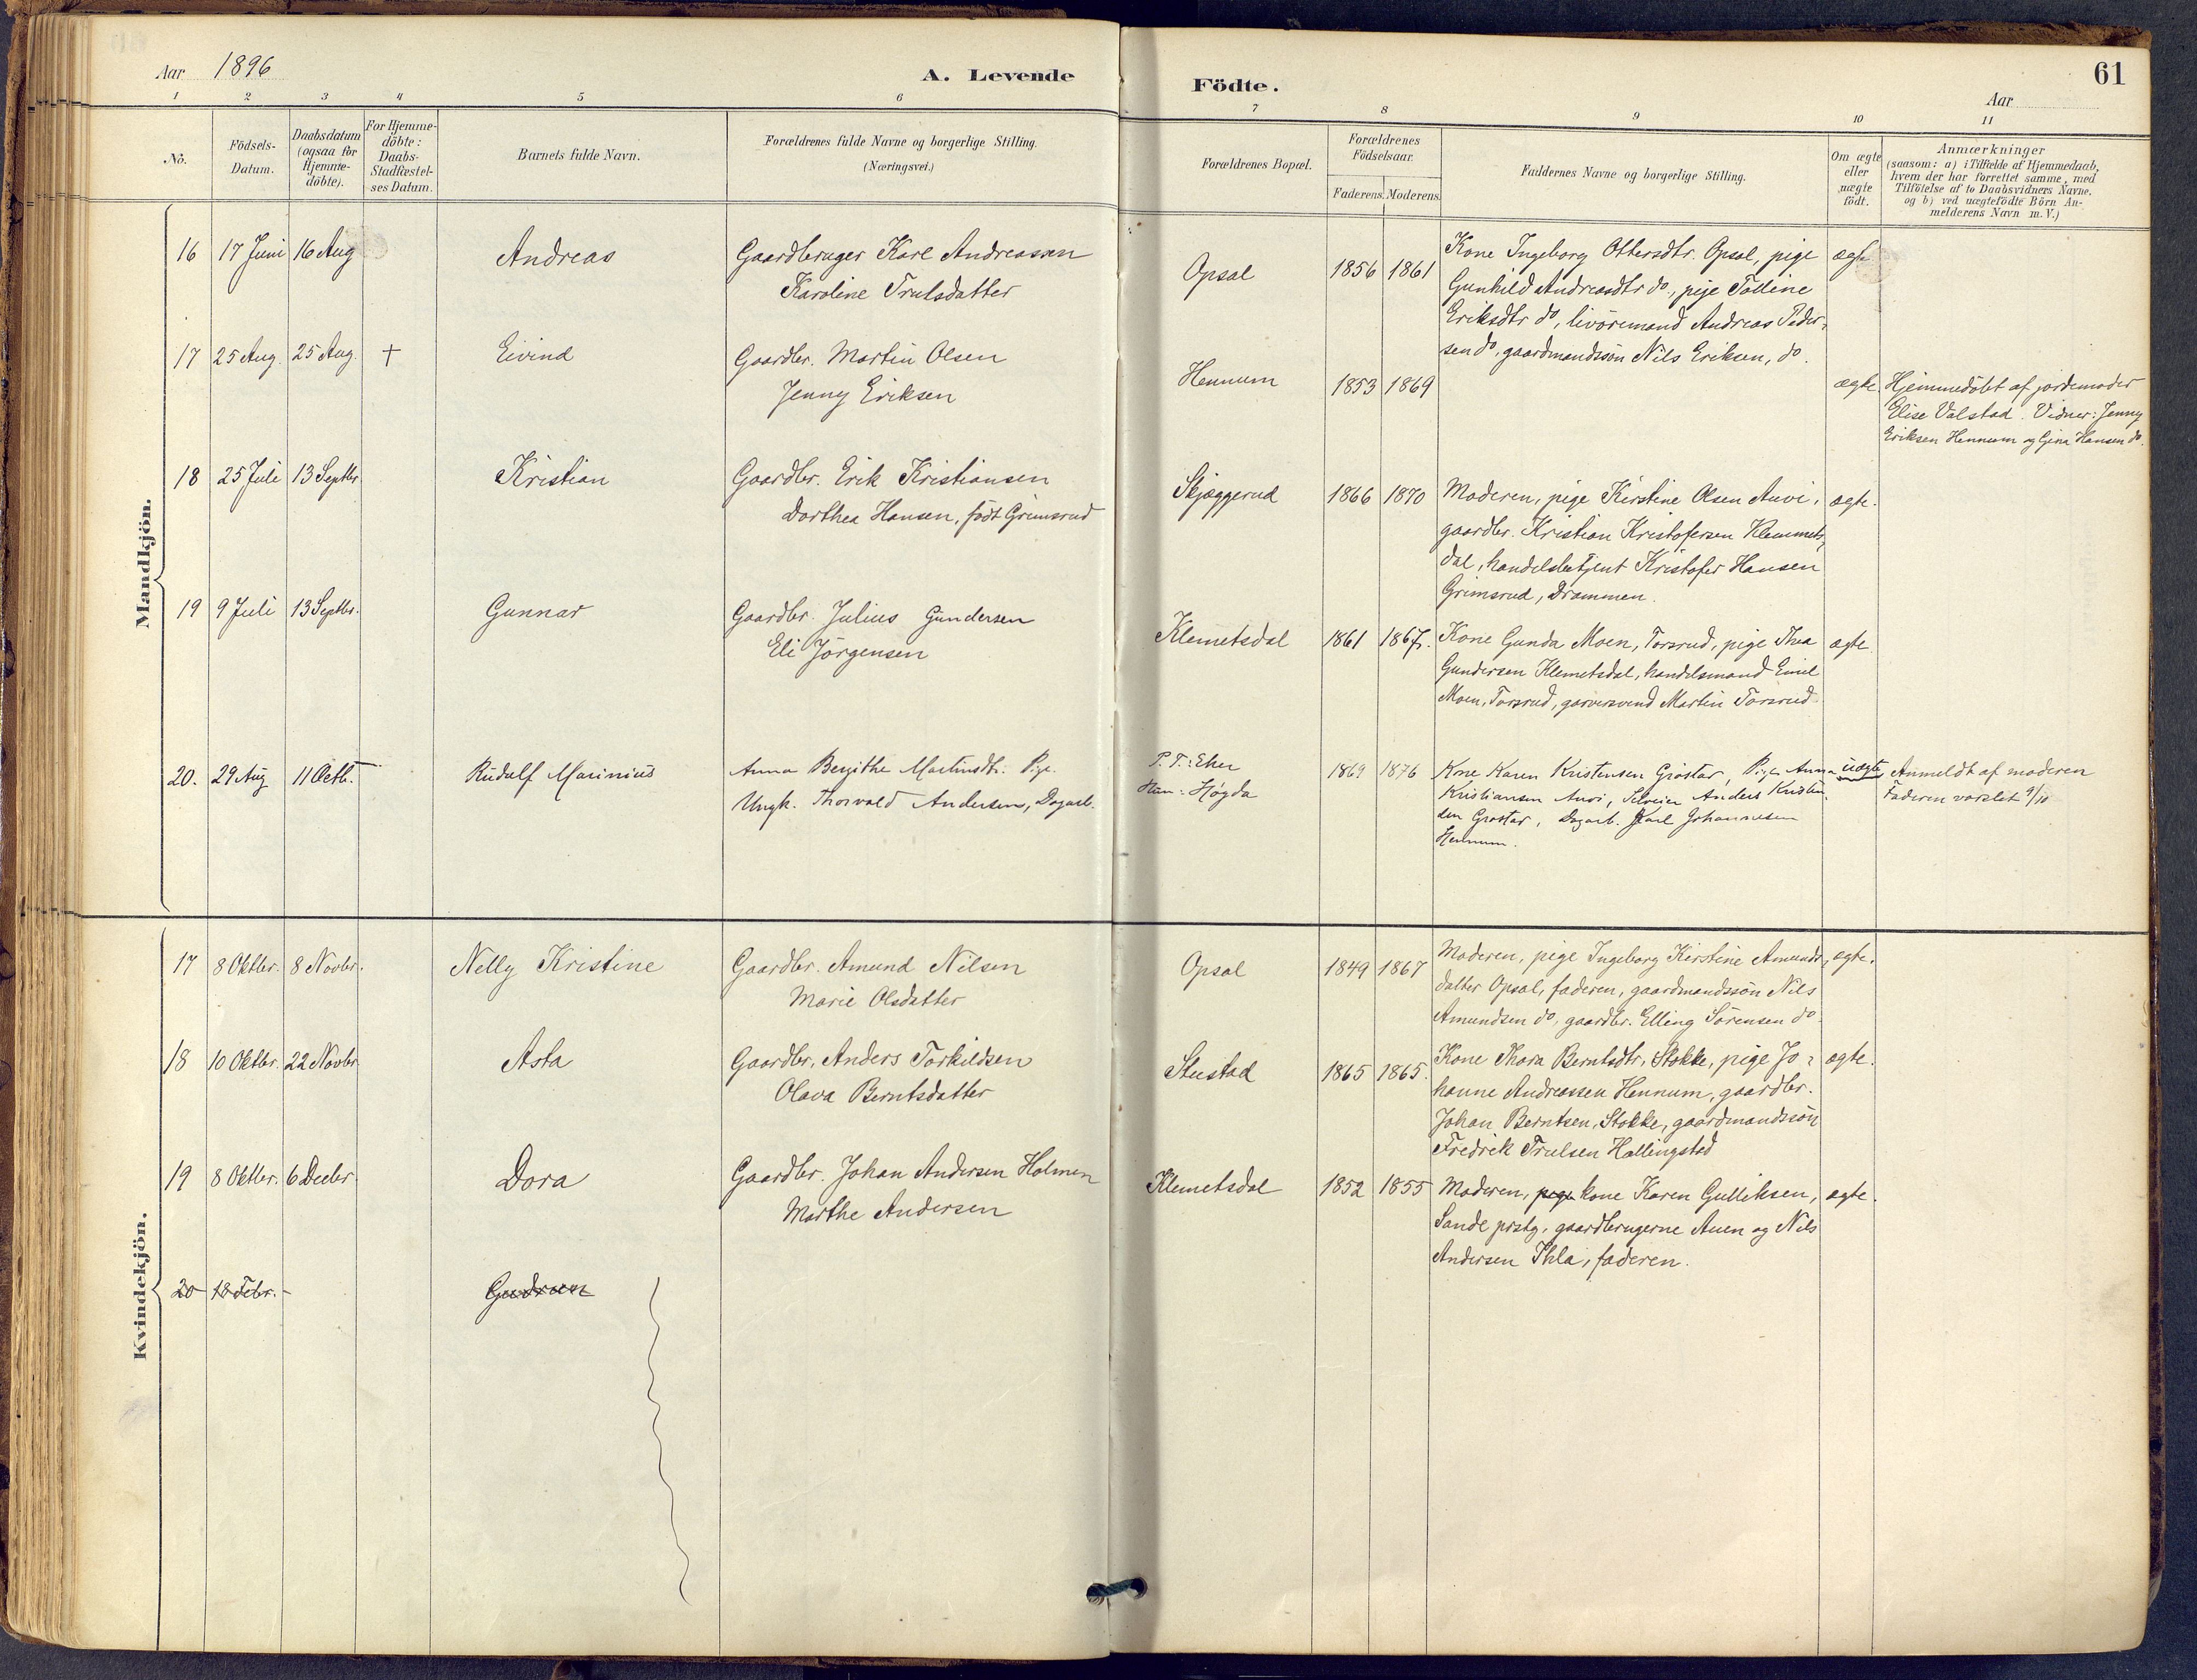 Aar 1896
A. Levende
Födte.
61
Aar
1 2 3 4 5 6 7 8 9 10 11
No.
Födsels-
Datum.
Daabsdatum
(ogsaa for
Hjemme-
döbte).
For Hjemme-
döbte:
Daabs-
Stadfæstel-
ses Datum.
Barnets fulde Navn.
Forældrenes fulde Navne og borgerlige Stilling.
(Næringsvei.)
Forældrenes Bopæl.
Forældrenes
Födselsaar.
Faderens. Moderens.
Faddernes Navne og borgerlige Stilling.
Om ægte
eller
uægte
födt.
Anmærkninger
(saasom: a) i Tilfælde af Hjemmedaab,
hvem der har forrettet samme, med
Tilföielse af to Daabsvidners Navne.
og b) ved uægtefödte Börn An-
melderens Navn m. V.)
Mandkjön.
16 17 Juni 16 Aug Andreas
Gaardbruger Karl Andreassen
Karoline Trulsdatter
Opsal 1856 1861
Kone Ingeborg Ottersdtr. Opsal, pige
Gunhild Andreasdtr do, pige Tolline
Eriksdtr do, livöremand Andreas Peder-
sen do, gaardmandssön Nils Eriksen, do.
ægte
17 25 Aug. 25 Aug. + Eivind
Gaardbr. Martin Olsen
Jenny Eriksen
Hennum 1853 1869
ægte.
Hjemmedöbt af jordemoder
Elise Valstad. Vidner: Jenny
Eriksen Hennum og Gina Hansen do.
18 25 Juli 13 Septbr Kristian
Gaardbr. Erik Kristiansen
Dorthea Hansen, födt Grimsrud
Skjæggerud 1866 1870
Moderen, pige Kirstine Olsen Auvi,
gaardbr. Kristian Kristofersen Klemmets-
dal, handelsbetjent Kristofer Hansen
Grimsrud, Drammen.
ægte.
19 9 Juli 13 Septbr. Gunnar
Gaardbr. Julius Gundersen
Eli Jörgensen
Klemetsdal 1861 1867.
Kone Gunda Moen, Torsrud, pige Thea
Gundersen Klemetsdal, handelsmand Emil
Moen, Torsrud, garversvend Martin Torsrud
ægte
20. 29 Aug 11 Octb. Rudolf Marinius
Anna Bergithe Martinsdtr. Pige.
Ungk. Thorvald Andersen, Dagarb.
P. T.: Eker
Hun: Høgda
1869 1876
Kone Karen Kristensen Grøstar, Pige Anna
Kristiansen Auvi, Selveier Anders Kristen-
sen Grøstar, Dagarb. Karl Johannesen
Hennum.
uægte
Anmeldt af moderen
Faderen varslet 9/10
Kvindekjön.
17 8 Oktbr. 8 Novbr. Nelly Kristine
Gaardbr. Amund Nilsen
Marie Olsdatter
Opsal 1849 1867
Moderen, pige Ingeborg Kirstine Amunds-
datter Opsal, faderen, gaardmandssön Nils
Amundsen do, gaardbr. Elling Sörensen do
ægte.
18 10 Oktbr. 22 Novbr Asta
Gaardbr. Anders Torkildsen
Olava Berntsdatter
Stustad 1865 1865.
Kone Thora Berntsdtr, Stokke, pige Jo-
hanne Andreassen Hennum, gaardbr.
Johan Berntsen, Stokke, gaardmandssön
Fredrik Trulsen Hallingstad
ægte.
19 8 Oktbr. 6 Decbr Dora
Gaardbr. Johan Andersen Holmen
Marthe Andersen
Klemetsdal 1852 1855
Moderen, pige kone Karen Gulliksen,
Sande prstg, gaardbrugerne Auen og Nils
Andersen Ihla, faderen.
ægte.
20 18 Febr. Gudrun